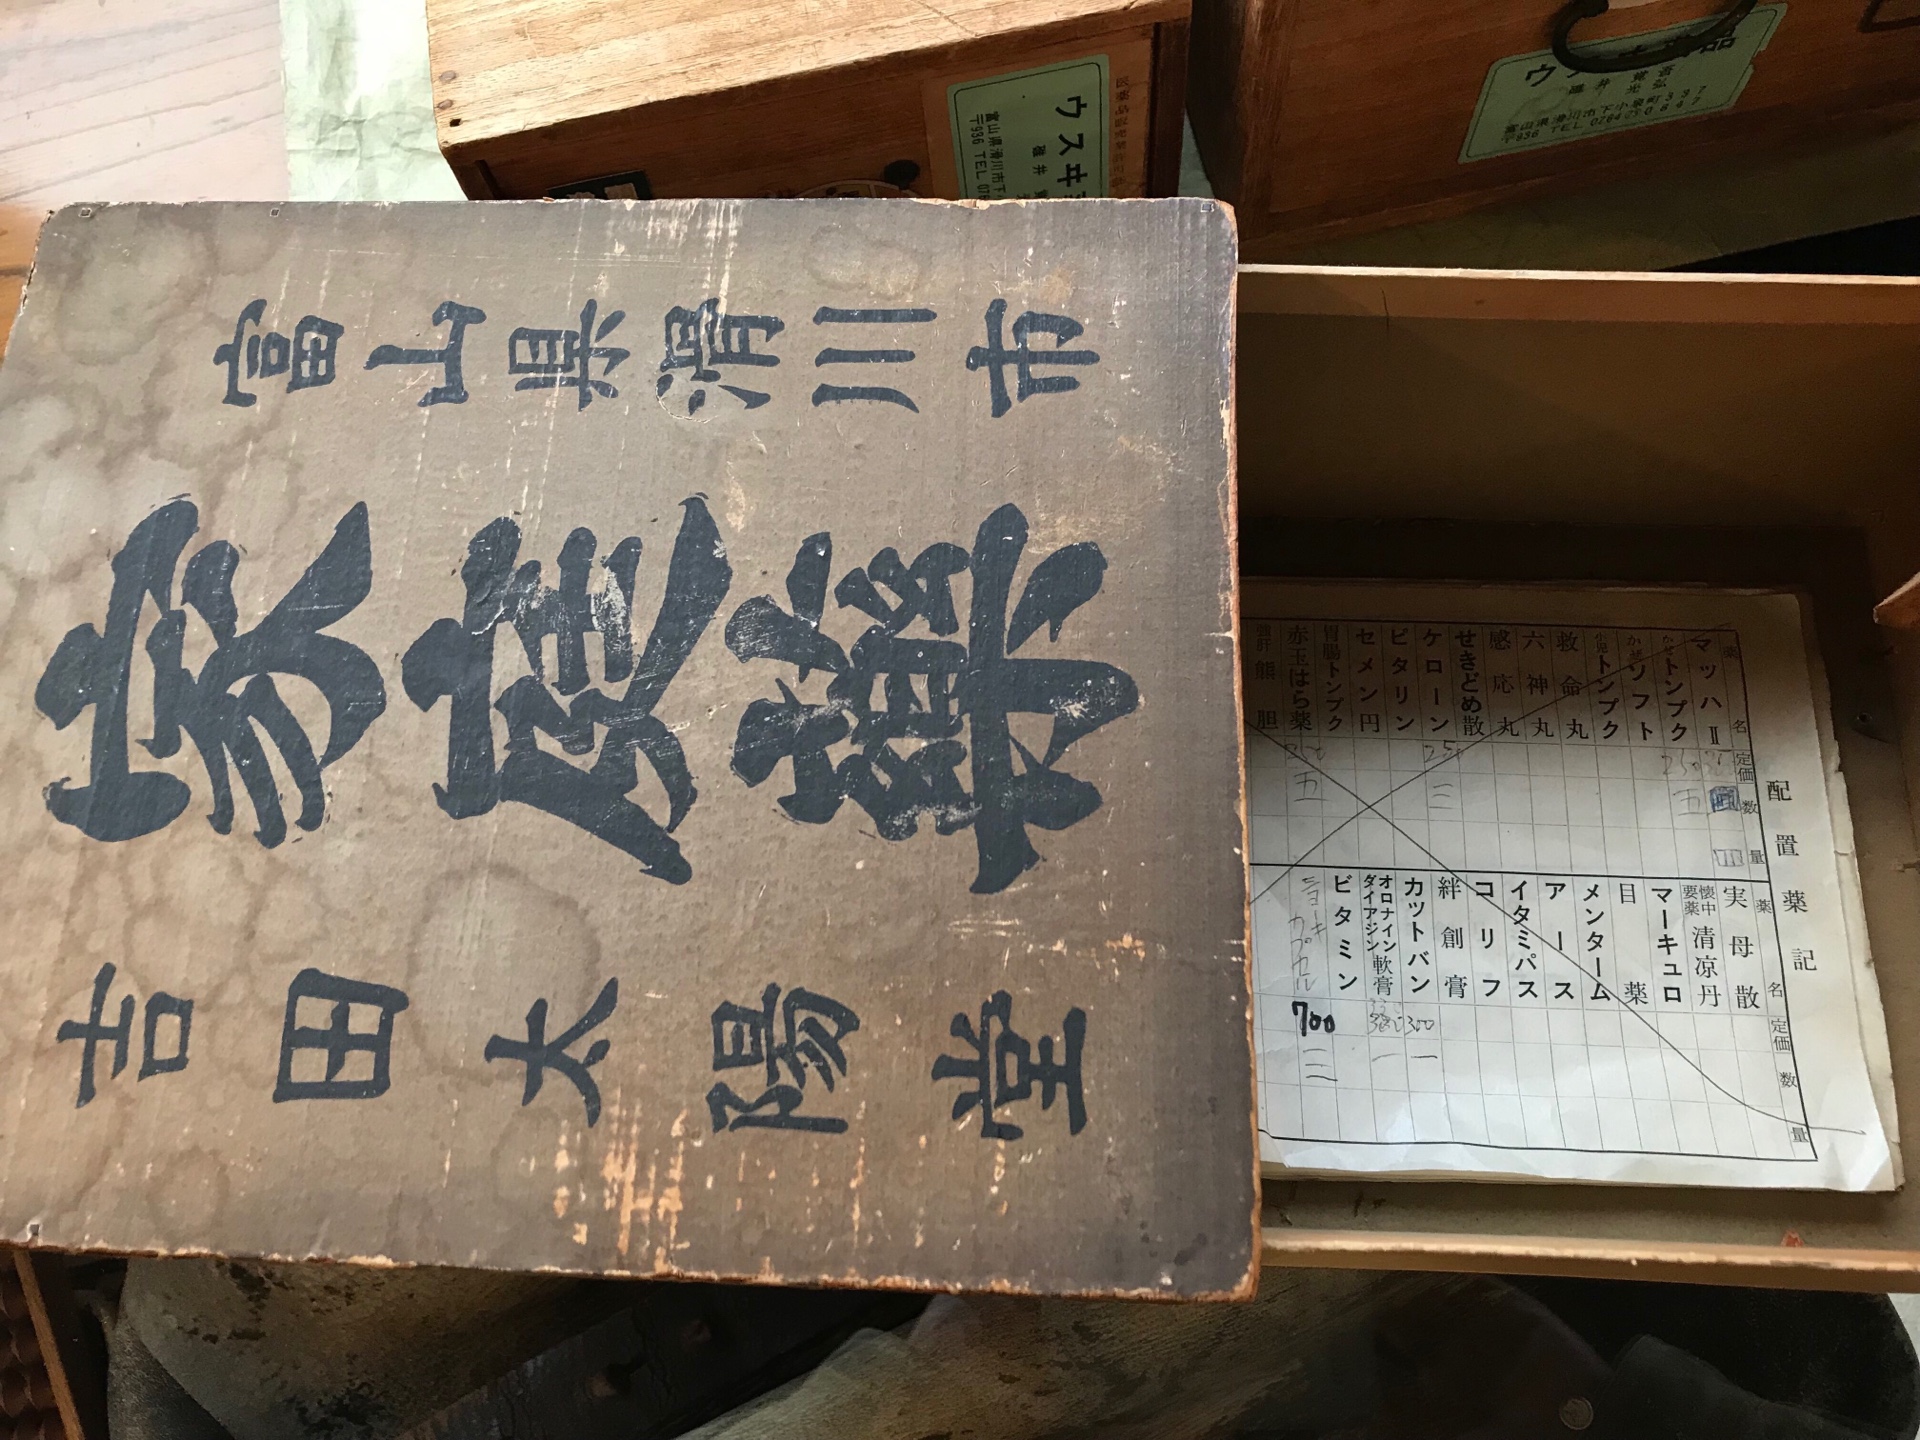 富山県滑川市
家庭薬
吉田太陽堂
ウスヰ
碓井
富山県滑川市下
〒936 TEL
富山県滑川市下小泉町337
〒936 TEL 0764
配置薬記
薬名
定価
数量
マッハⅡ
かぜトンプク
かぜソフト
小児トンプク
救命丸
六神丸
感応丸
せきどめ散
ケローン
250
三
ビタリン
セメン円
胃腸トンプク
赤玉はら薬
五
熊胆
薬名
定価
数量
実母散
懐中要薬 清涼丹
マーキュロ
目薬
メンターム
アース
イタミパス
コリフ
絆創膏
カットバン
300
一
オロナイン ダイアジン 軟膏
一
ビタミン
700
三